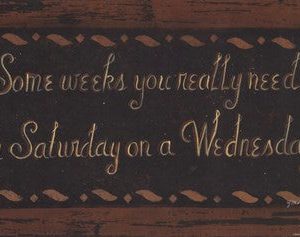 Some weeks you really need
a Saturday on a Wednesda